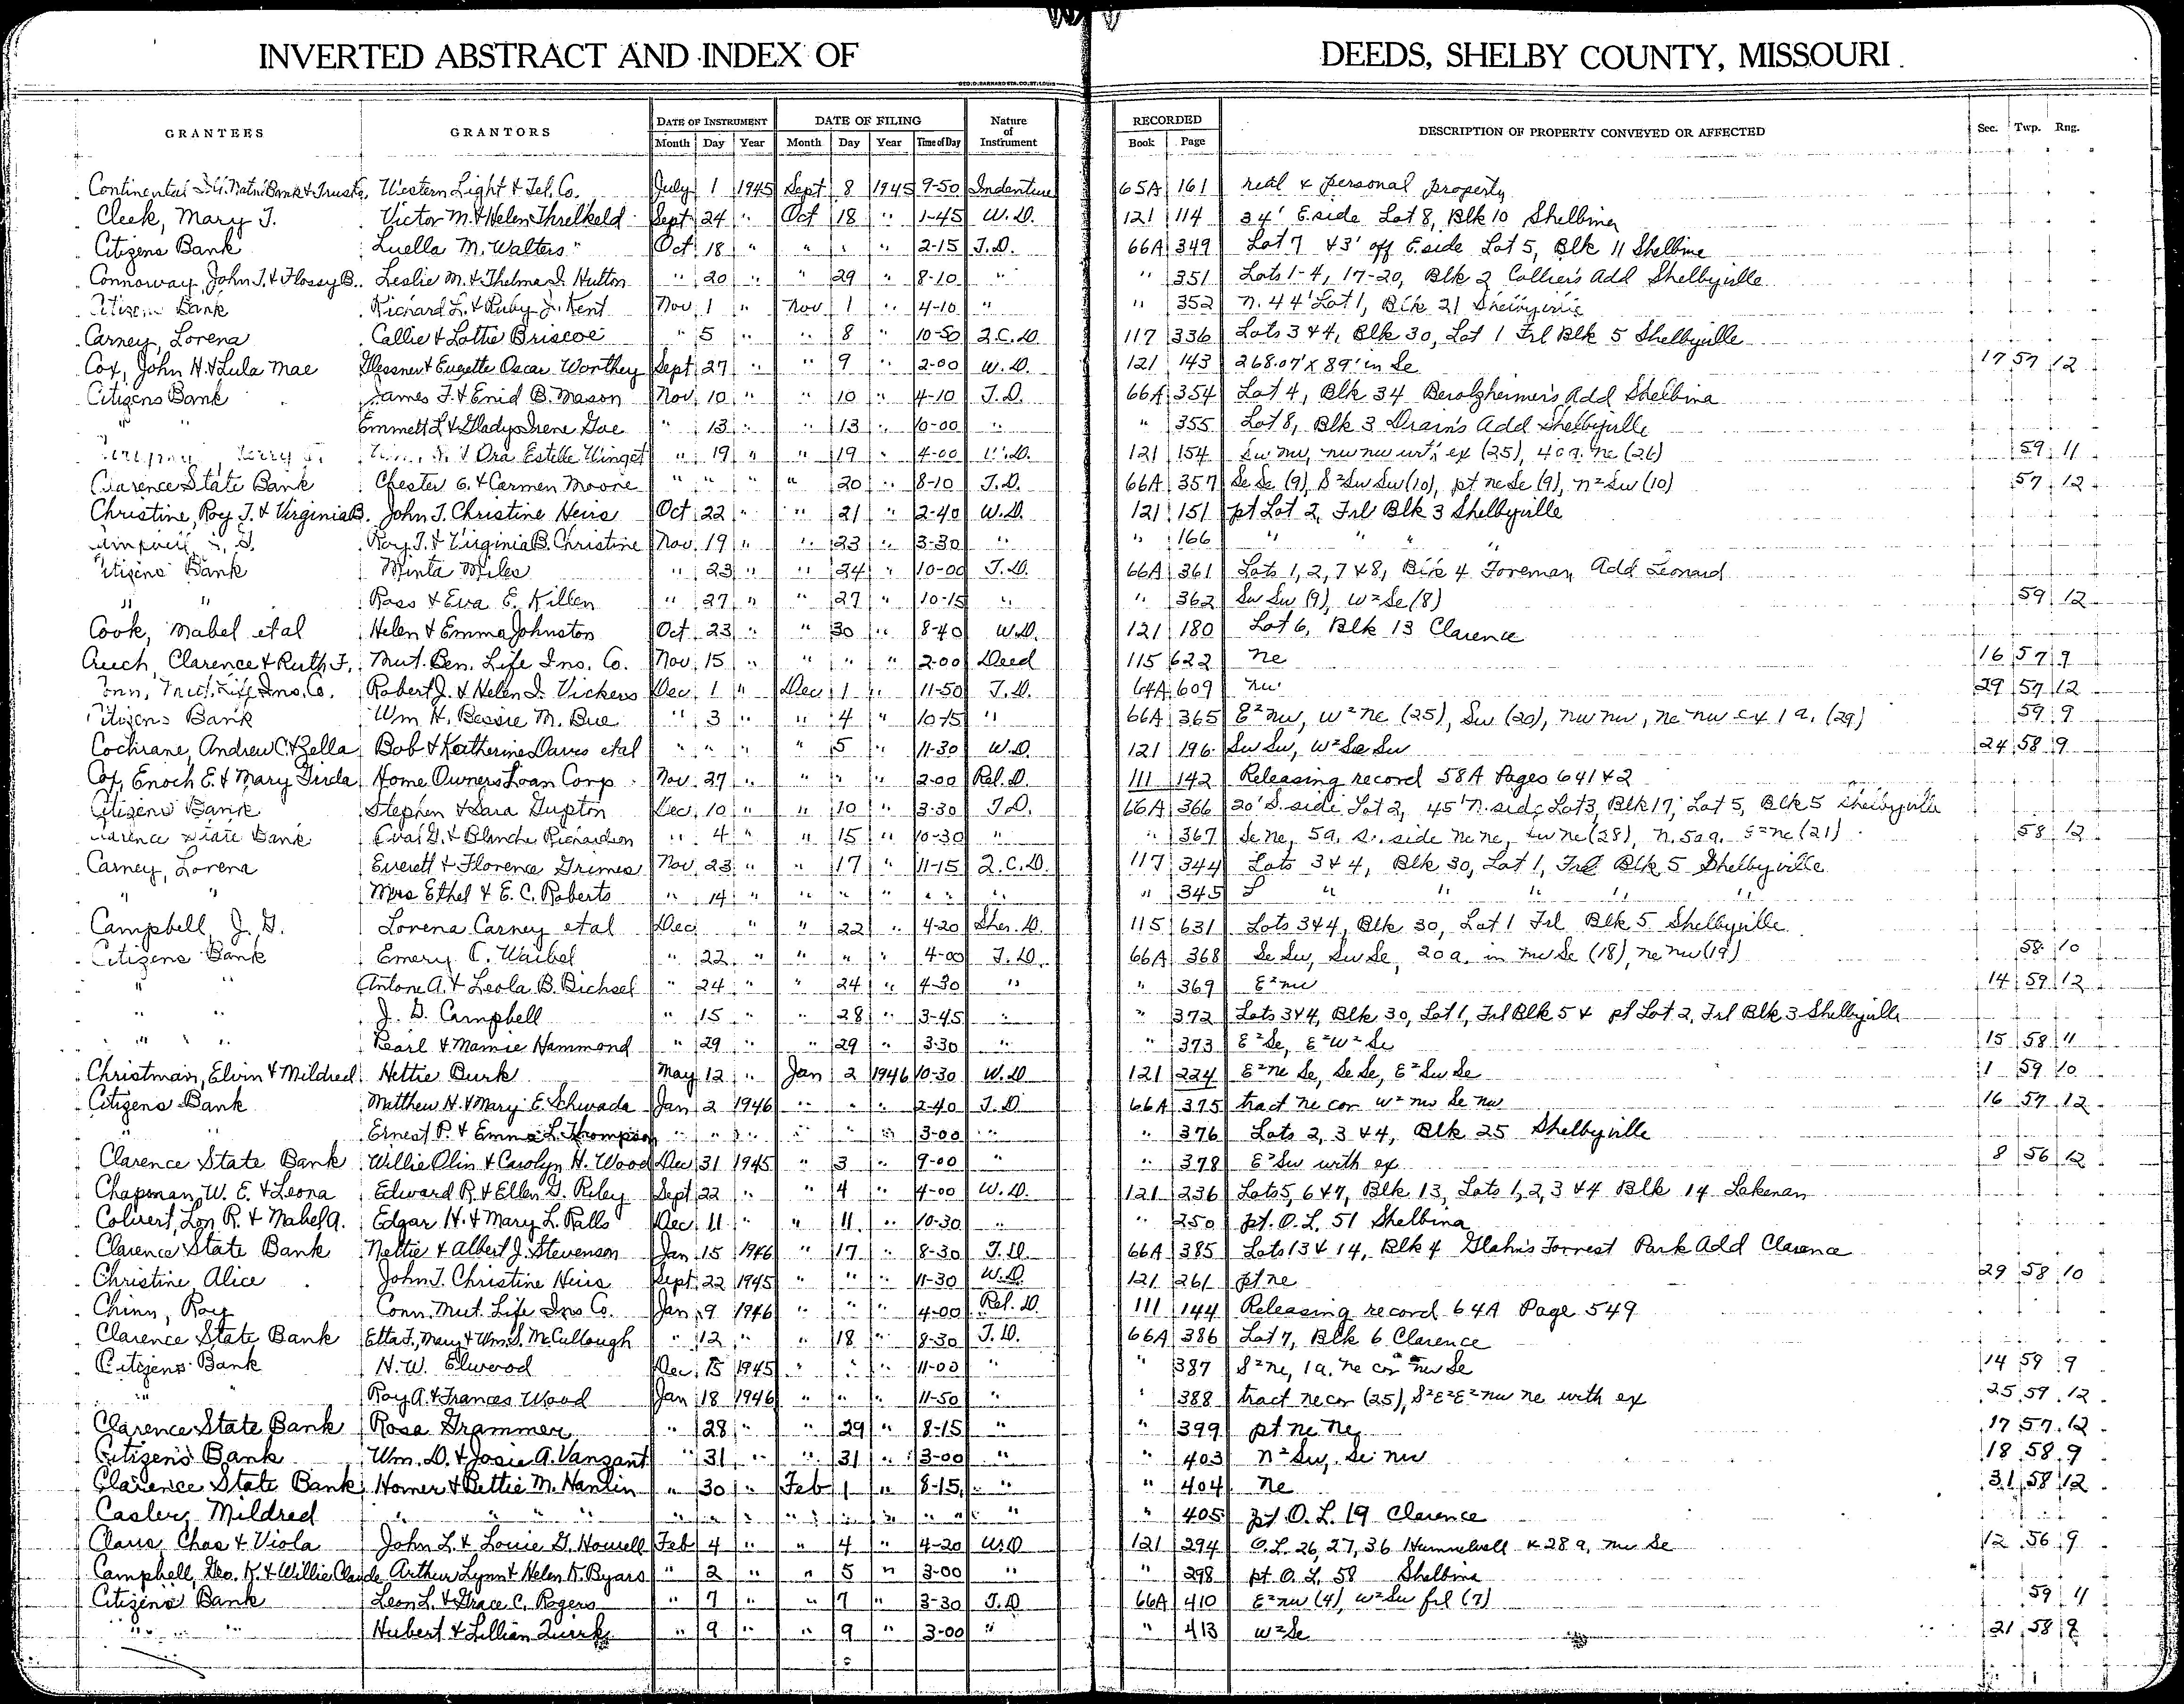 INVERTED ABSTRACT AND INDEX OF DEEDS, SHELBY COUNTY, MISSOURI
GEO. D. BARNARD STA. CO. ST. LOUIS
GRANTEES GRANTORS DATE OF INSTRUMENT DATE OF FILING Nature of Instrument RECORDED DESCRIPTION OF PROPERTY CONVEYED OR AFFECTED Sec. Twp. Rng.
Month Day Year Month Day Year Time of Day Book Page
Continental Natn'l Bank & Trust Co. Western Light & Tel. Co. July 1 1945 Sept 8 1945 9-50 Indenture 65A 161 real & personal property
Cleek, Mary J. Victor M. & Helen Threlkeld Sept 24 " Oct 18 " 1-45 W.D. 121 114 34' E side Lot 8, Blk 10 Shelbina
Citizens Bank Luella M. Walters Oct 18 " " " " 2-15 T.D. 66A 349 Lot 7 & 3' off E side Lot 5, Blk 11 Shelbina
Connoway, John T. & Flossy B. Leslie M. & Thelma I. Hutton " 20 " " 29 " 8-10 " " 351 Lots 1-4, 17-20, Blk 2 Collier's Add Shelbyville
Citizens Bank Richard L. & Ruby J. Kent Nov 1 " Nov 1 " 4-10 " " 352 N. 44' Lot 1, Blk 21 Shelbyville
Carney, Lorena Callie & Lottie Briscoe " 5 " " 8 " 10-50 Q.C.D. 117 336 Lots 3 & 4, Blk 30, Lot 1 Frl Blk 5 Shelbyville
Cox, John H. & Lula Mae Glessner & Eugette Oscar Worthey Sept 27 " " 9 " 2-00 W.D. 121 143 268.07' X 89' in Se 17 57 12
Citizens Bank James F. & Enid B. Mason Nov 10 " " 10 " 4-10 T.D. 66A 354 Lot 4, Blk 34 Berolzheimer's Add Shelbina
" " Emmett L & Gladys Irene Goe " 13 " " 13 " 10-00 " " 355 Lot 8, Blk 3 Drain's Add Shelbyville
& Ora Estelle Winget " 19 " " 19 " 4-00 W.D. 121 154 Sw nw, nw nw ex (25), 40a. ne (26) 59 11
Clarence State Bank Chester G. & Carmen Moore " " " " 20 " 8-10 T.D. 66A 357 Se Se (9), S² Sw Sw (10), pt ne Se (9), n² Sw (10) 57 12
Christine, Roy T. & Virginia B. John T. Christine Heirs Oct 22 " " 21 " 2-40 W.D. 121 151 pt Lot 2, Frl Blk 3 Shelbyville
Campbell, J. G. Roy T. & Virginia B. Christine Nov 19 " " 23 " 3-30 " " 166 " " " "
Citizens Bank Minta Miles " 23 " " 24 " 10-00 T.D. 66A 361 Lots 1, 2, 7 & 8, Blk 4 Foreman Add Leonard
" " Ross & Eva E. Killen " 27 " " 27 " 10-15 " " 362 Sw Sw (9), w² Se (8) 59 12
Cook, Mabel et al Helen & Emma Johnston Oct 23 " " 30 " 8-40 W.D. 121 180 Lot 6, Blk 13 Clarence
Creech, Clarence & Ruth F. Mut. Ben. Life Ins. Co. Nov 15 " " " " 2-00 Deed 115 622 ne 16 57 9
Conn. Mut. Life Ins. Co. Robert J. & Helen I. Vickers Dec 1 " Dec 1 " 11-50 T.D. 64A 609 nw 29 57 12
Citizens Bank Wm H. Bessie M. Bue " 3 " " 4 " 10-15 " 66A 365 E² nw, w² ne (25), Sw (20), nw nw, ne nw ex 1a. (29) 59 9
Cochrane, Andrew C. & Zella Bob & Katherine Davis et al " " " " 5 " 11-30 W.D. 121 196 Sw Sw, w² Se Sw 24 58 9
Cox, Enoch E. & Mary Girda Home Owners Loan Corp Nov 27 " " " " 2-00 Rel. D. 111 142 Releasing record 58A Pages 641 & 2
Citizens Bank Stephen & Sara Gupton Dec 10 " " 10 " 3-30 T.D. 66A 366 20' S. side Lot 2, 45' N. side Lot 3, Blk 17, Lot 5, Blk 5 Shelbyville
Clarence State Bank Eva G. & Blanche Richardson " 4 " " 15 " 10-30 " " 367 Se ne, 5a. S. side ne ne, sw ne (28), n. 50a. E² ne (21) 58 12
Carney, Lorena Everett & Florence Grimes Nov 23 " " 17 " 11-15 Q.C.D. 117 344 Lots 3 & 4, Blk 30, Lot 1, Frl Blk 5 Shelbyville
" " Mrs Ethel & E. C. Roberts " 14 " " " " " " " 345 " " " " "
Campbell, J. G. Lorena Carney et al Dec " " 22 " 4-20 Sher. D. 115 631 Lots 3 & 4, Blk 30, Lot 1 Frl Blk 5 Shelbyville
Citizens Bank Emery C. Waibel " 22 " " " " 4-00 T.D. 66A 368 Se Sw, Sw Se, 20a. in nw Se (18), ne nw (19) 58 10
" " Antone A. & Leola B. Bichsel " 24 " " 24 " 4-30 " " 369 E² nw 14 59 12
" " J. G. Campbell " 15 " " 28 " 3-45 " " 372 Lots 3 & 4, Blk 30, Lot 1, Frl Blk 5 & pt Lot 2, Frl Blk 3 Shelbyville
" " Pearl & Mamie Hammond " 29 " " 29 " 3-30 " " 373 E² Se, E² w² Se 15 58 11
Christman, Elvin & Mildred Hettie Burk May 12 " Jan 2 1946 10-30 W.D. 121 224 E² ne Se, Se Se, E² Sw Se 1 59 10
Citizens Bank Matthew H. & Mary E. Schwada Jan 2 1946 " " " 2-40 T.D. 66A 375 tract ne cor w² nw Se nw 16 57 12
" " Ernest P. & Emma L. Thompson " " " " " " 3-00 " " 376 Lots 2, 3 & 4, Blk 25 Shelbyville
Clarence State Bank Willie Olin & Carolyn H. Wood Dec 31 1945 " 3 " 9-00 " " 378 E² Sw with ex 8 56 12
Chapman, W. E. & Leona Edward R. & Ellen G. Riley Sept 22 " " 4 " 4-00 W.D. 121 236 Lots 5, 6 & 7, Blk 13, Lots 1, 2, 3 & 4 Blk 14 Lakenan
Colvert, Lon R. & Mabel A. Edgar H. & Mary L. Ralls Dec 11 " " 11 " 10-30 " " 250 pt. O.L. 51 Shelbina
Clarence State Bank Nettie & Albert J. Stevenson Jan 15 1946 " 17 " 8-30 T.D. 66A 385 Lots 13 & 14, Blk 4 Glahn's Forrest Park Add Clarence
Christine, Alice John T. Christine Heirs Sept 22 1945 " " " 11-30 W.D. 121 261 pt ne 29 58 10
Chinn, Roy Conn. Mut. Life Ins Co. Jan 9 1946 " " " 4-00 Rel. D. 111 144 Releasing record 64A Page 549
Clarence State Bank Etta F., Mary & Wm. S. McCullough " 12 " " 18 " 8-30 T.D. 66A 386 Lot 7, Blk 6 Clarence
Citizens Bank H. W. Elwood Dec 15 1945 " " " 11-00 " " 387 S² ne, 1a. ne cor nw Se 14 59 9
" " Roy A. & Frances Wood Jan 18 1946 " " " 11-50 " " 388 tract ne cor (25), S² E² E² nw ne with ex 25 59 12
Clarence State Bank Rosa Grammer " 28 " " 29 " 8-15 " " 399 pt ne ne 17 57 12
Citizens Bank Wm. D. & Josie A. Vanzant " 31 " " 31 " 3-00 " " 403 n² Sw, Se nw 18 58 9
Clarence State Bank Homer & Bettie M. Hanlin " 30 " Feb 1 " 8-15 " " 404 ne 31 58 12
Casler, Mildred " " " " " " " " " " " " " 405 pt O.L. 19 Clarence
Claus Chas & Viola John L. & Louie G. Howell Feb 4 " " 4 " 4-20 W.D 121 294 O.L. 26, 27, 36 Hunnewell & 28 a. nw Se 12 56 9
Campbell, Geo. K. & Willie Claude Arthur Lynn & Helen K. Byars " 2 " " 5 " 3-00 " " 298 pt. O.L. 58 Shelbina
Citizens Bank Leon L. & Grace C. Rogers " 7 " " 7 " 3-30 T.D 66A 410 E² nw (4), w² Sw frl (7) 59 11
" " Hubert & Lillian Quirk " 9 " " 9 " 3-00 " " 413 w² Se 21 58 9